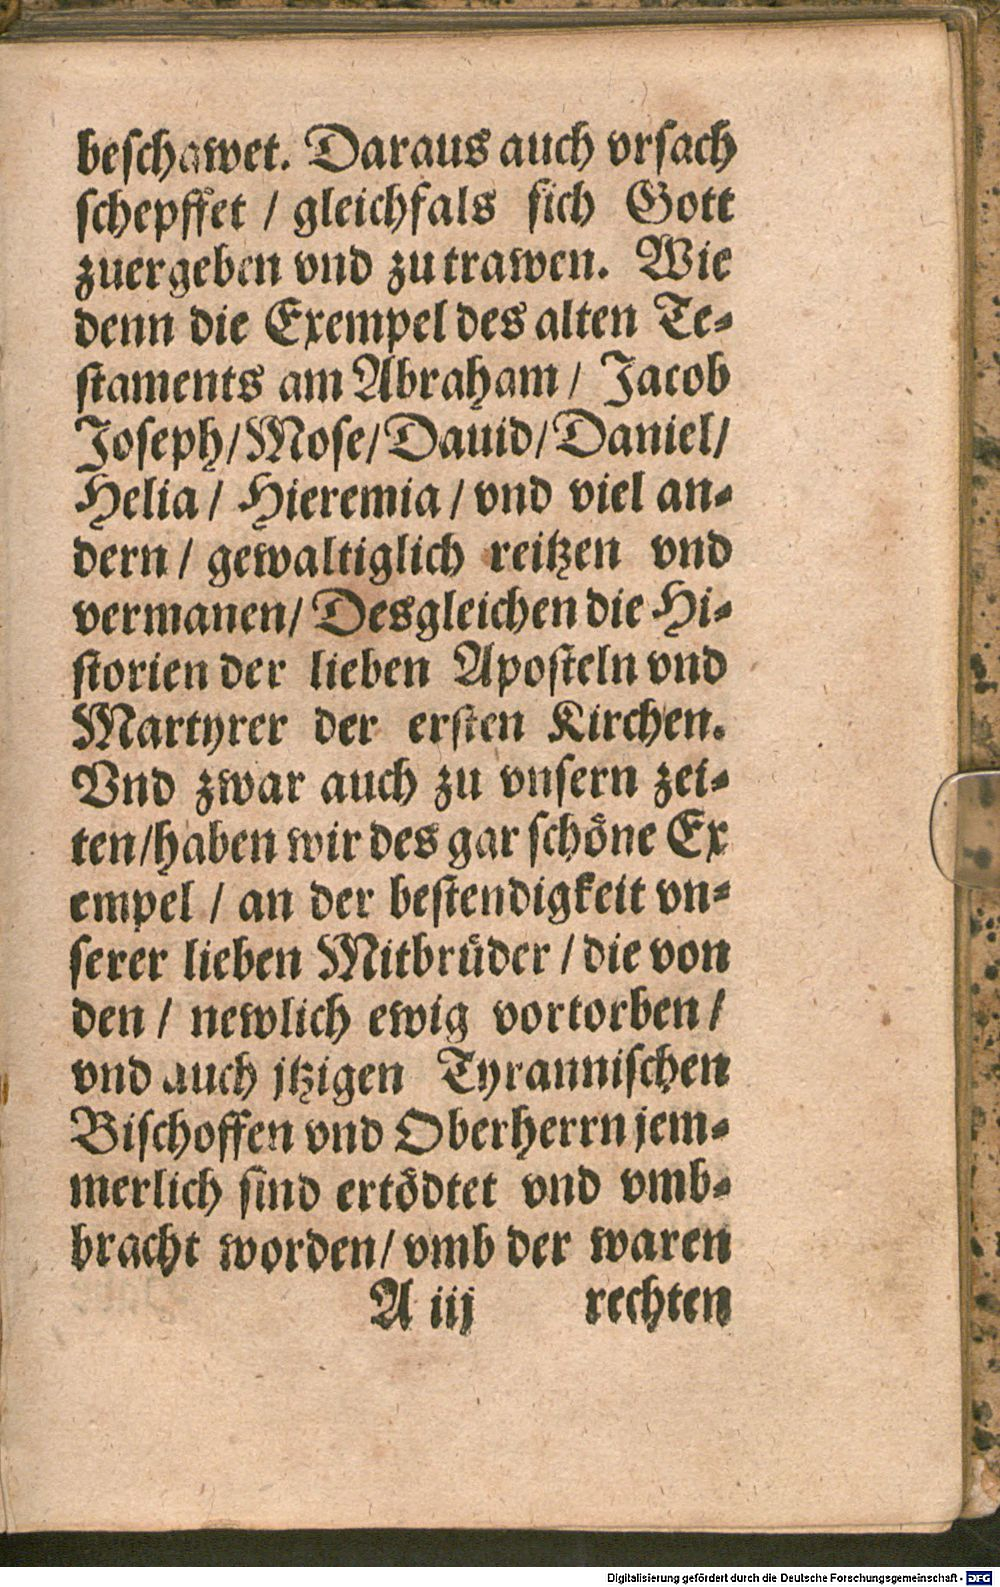 beschawet. Daraus auch vrsach
schepffet / gleichfals sich Gott
zuergeben vnd zu trawen. Wie
denn die Exempel des alten Te-
staments am Abraham / Jacob
Joseph / Mose / Dauid / Daniel /
Helia / Hieremia / vnd viel an-
dern / gewaltiglich reitzen vnd
vermanen / Desgleichen die Hi-
storien der lieben Aposteln vnd
Martyrer der ersten Kirchen.
Vnd zwar auch zu vnsern zei-
ten / haben wir des gar schöne Ex
empel / an der bestendigkeit vn-
serer lieben Mitbrüder / die von
den / newlich ewig vortorben /
vnd auch jtzigen Tyrannischen
Bischoffen vnd Oberherrn jem-
merlich sind ertödtet vnd vmb-
bracht worden / vmb der waren
A iij rechten
Digitalisierung gefördert durch die Deutsche Forschungsgemeinschaft - DFG